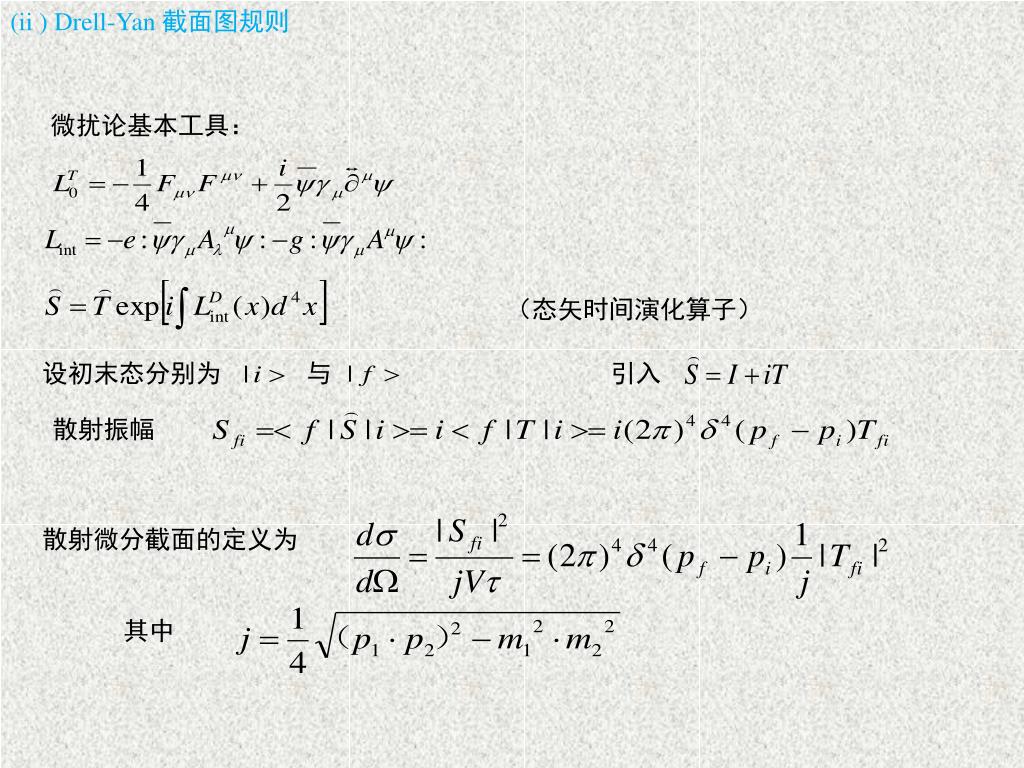 (ii ) Drell-Yan 截面图规则
微扰论基本工具：
L₀ᵀ = −1/4 F_μν F^μν + i/2 ψ̄γ_μ ∂⃡^μ ψ
L_int = −e :ψ̄γ_μ A_λ^μ ψ: −g :ψ̄γ_μ A^μ ψ:
Ŝ = T̂ exp[i∫ L_int^D (x)d⁴x] （态矢时间演化算子）
设初末态分别为 | i > 与 | f > 引入 Ŝ = I + iT
散射振幅 S_fi =< f | Ŝ | i >= i < f | T | i >= i(2π)⁴δ⁴(p_f − p_i)T_fi
散射微分截面的定义为 dσ/dΩ = |S_fi|²/jVτ = (2π)⁴δ⁴(p_f − p_i) 1/j |T_fi|²
其中 j = 1/4 √(（p₁ · p₂）² − m₁² · m₂²)